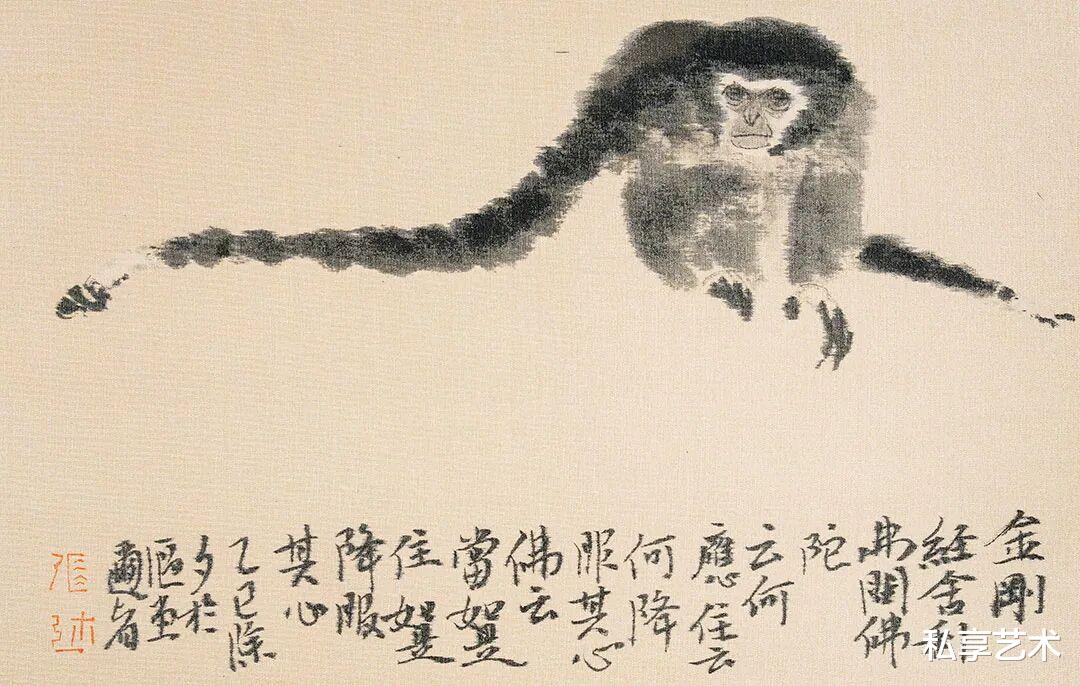 金剛
經舍利
弗問佛
陀
云何
應住云
何降
服其心
佛云
當如是
住如是
降服
其心
乙巳除
夕於
私享艺术